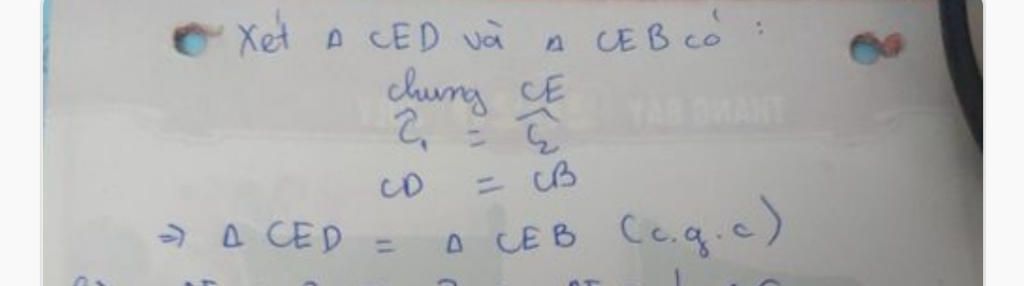 Xét Δ CED và Δ CEB có :
chung CE
Ĉ₁ = Ĉ₂
CD = CB
⇒ Δ CED = Δ CEB (c.g.c)